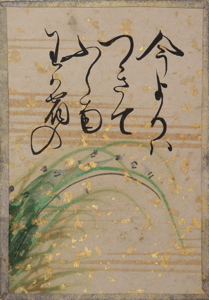 今よりハ
つきて
ふら南
わか宿の